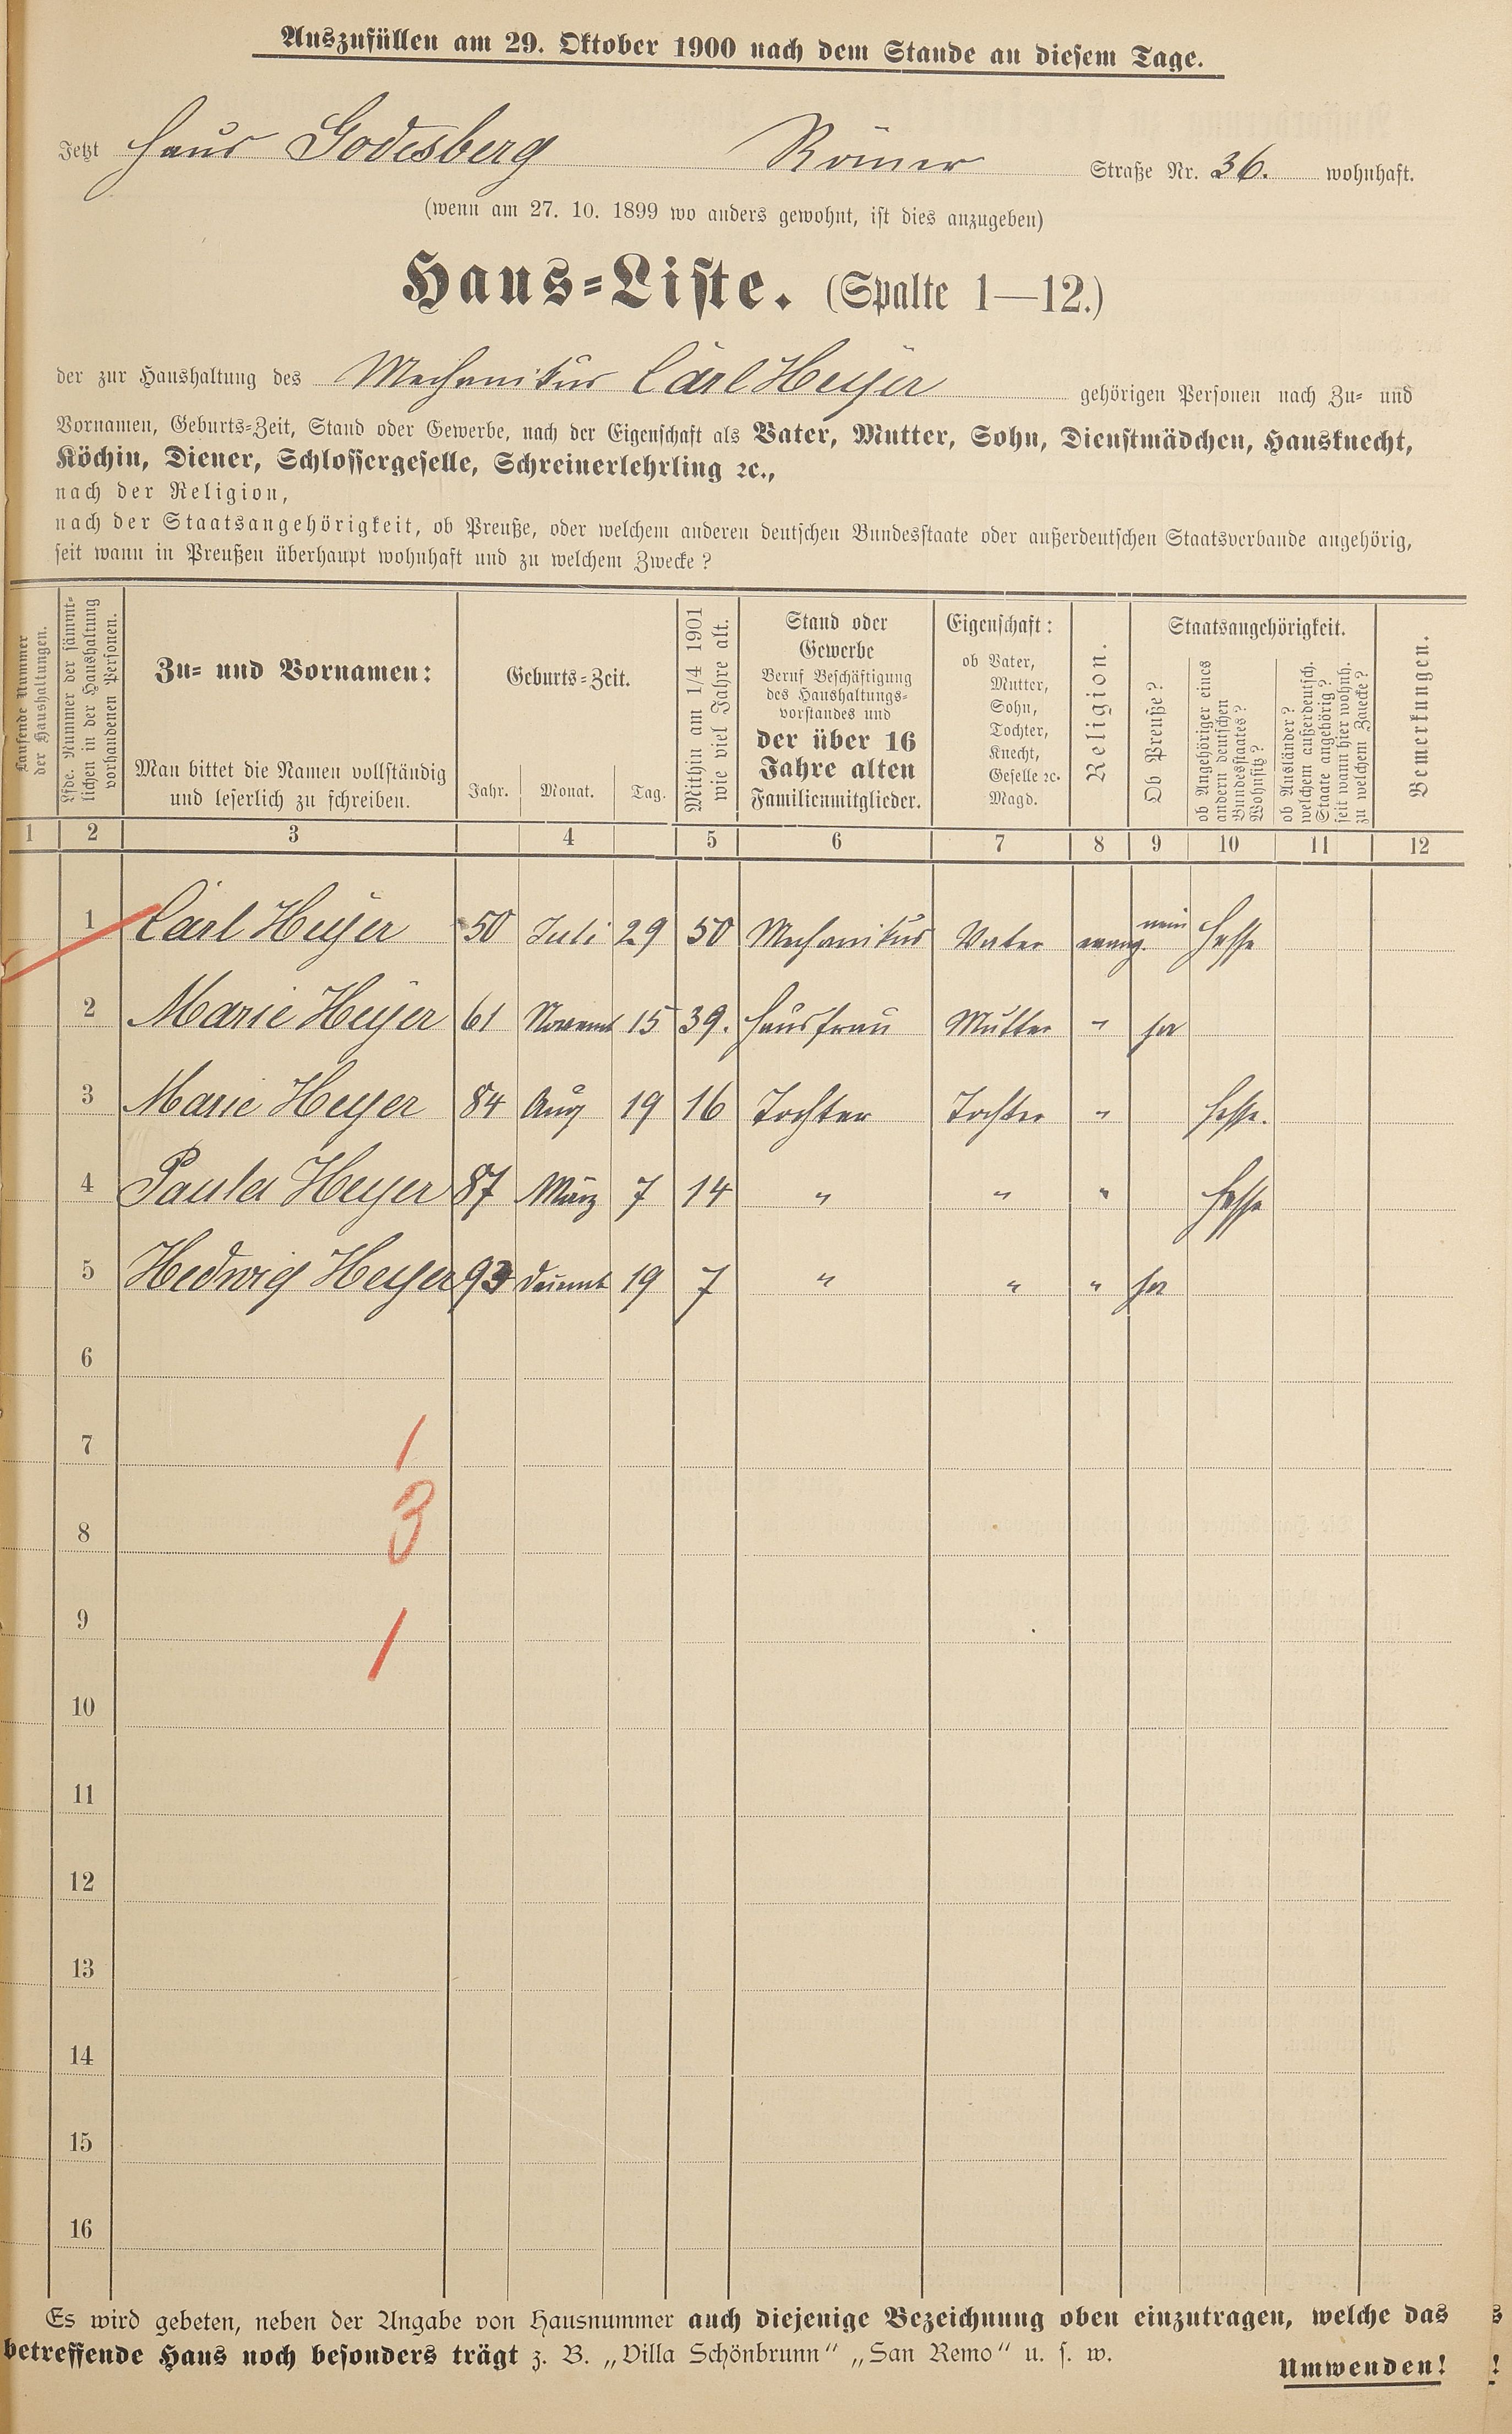 Auszufüllen am 29. Oktober 1900 nach dem Stande an diesem Tage.
Jetzt Haus Godesberg Römer Straße Nr. 36. wohnhaft.
(wenn am 27. 10. 1899 wo anders gewohnt, ist dies anzugeben)
Haus-Liste. (Spalte 1—12.)
der zur Haushaltung des Mechanikus Carl Heyer gehörigen Personen nach Zu- und
Vornamen, Geburts-Zeit, Stand oder Gewerbe, nach der Eigenschaft als Vater, Mutter, Sohn, Dienstmädchen, Hausknecht,
Köchin, Diener, Schlossergeselle, Schreinerlehrling ꝛc.,
nach der Religion,
nach der Staatsangehörigkeit, ob Preuße, oder welchem anderen deutschen Bundesstaate oder außerdeutschen Staatsverbande angehörig,
seit wann in Preußen überhaupt wohnhaft und zu welchem Zwecke?
Laufende Nummer
der Haushaltungen.
Lfde. Nummer der sämmt-
lichen in der Haushaltung
vorhandenen Personen.
Zu- und Vornamen:
Man bittet die Namen vollständig
und leserlich zu schreiben.
Geburts-Zeit.
Jahr. Monat. Tag.
Mithin am 1/4 1901
wie viel Jahre alt.
Stand oder
Gewerbe
Beruf Beschäftigung
des Haushaltungs-
vorstandes und
der über 16
Jahre alten
Familienmitglieder.
Eigenschaft:
ob Vater,
Mutter,
Sohn,
Tochter,
Knecht,
Geselle ꝛc.
Magd.
Religion.
Staatsangehörigkeit.
Ob Preuße?
ob Angehöriger eines
andern deutschen
Bundesstaates?
Wohnsitz?
ob Ausländer?
welchem außerdeutsch.
Staate angehörig?
seit wann hier wohnh.
zu welchem Zwecke?
Bemerkungen.
1 2 3 4 5 6 7 8 9 10 11 12
1 Carl Heyer 50 Juli 29 50 Mechanikus Vater evang. nein Hesse
2 Marie Heyer 61 Novemb 15 39. Hausfrau Mutter " ja
3 Marie Heyer 84 Aug 19 16 Tochter Tochter " Hesse.
4 Paula Heyer 87 März 7 14 " " " Hesse
5 Hedwig Heyer 93 Dezemb 19 7 " " " ja
6
7 1
8 3
9 1
10
11
12
13
14
15
16
Es wird gebeten, neben der Angabe von Hausnummer auch diejenige Bezeichnung oben einzutragen, welche das
betreffende Haus noch besonders trägt z. B. „Villa Schönbrunn“ „San Remo“ u. s. w.
Umwenden!